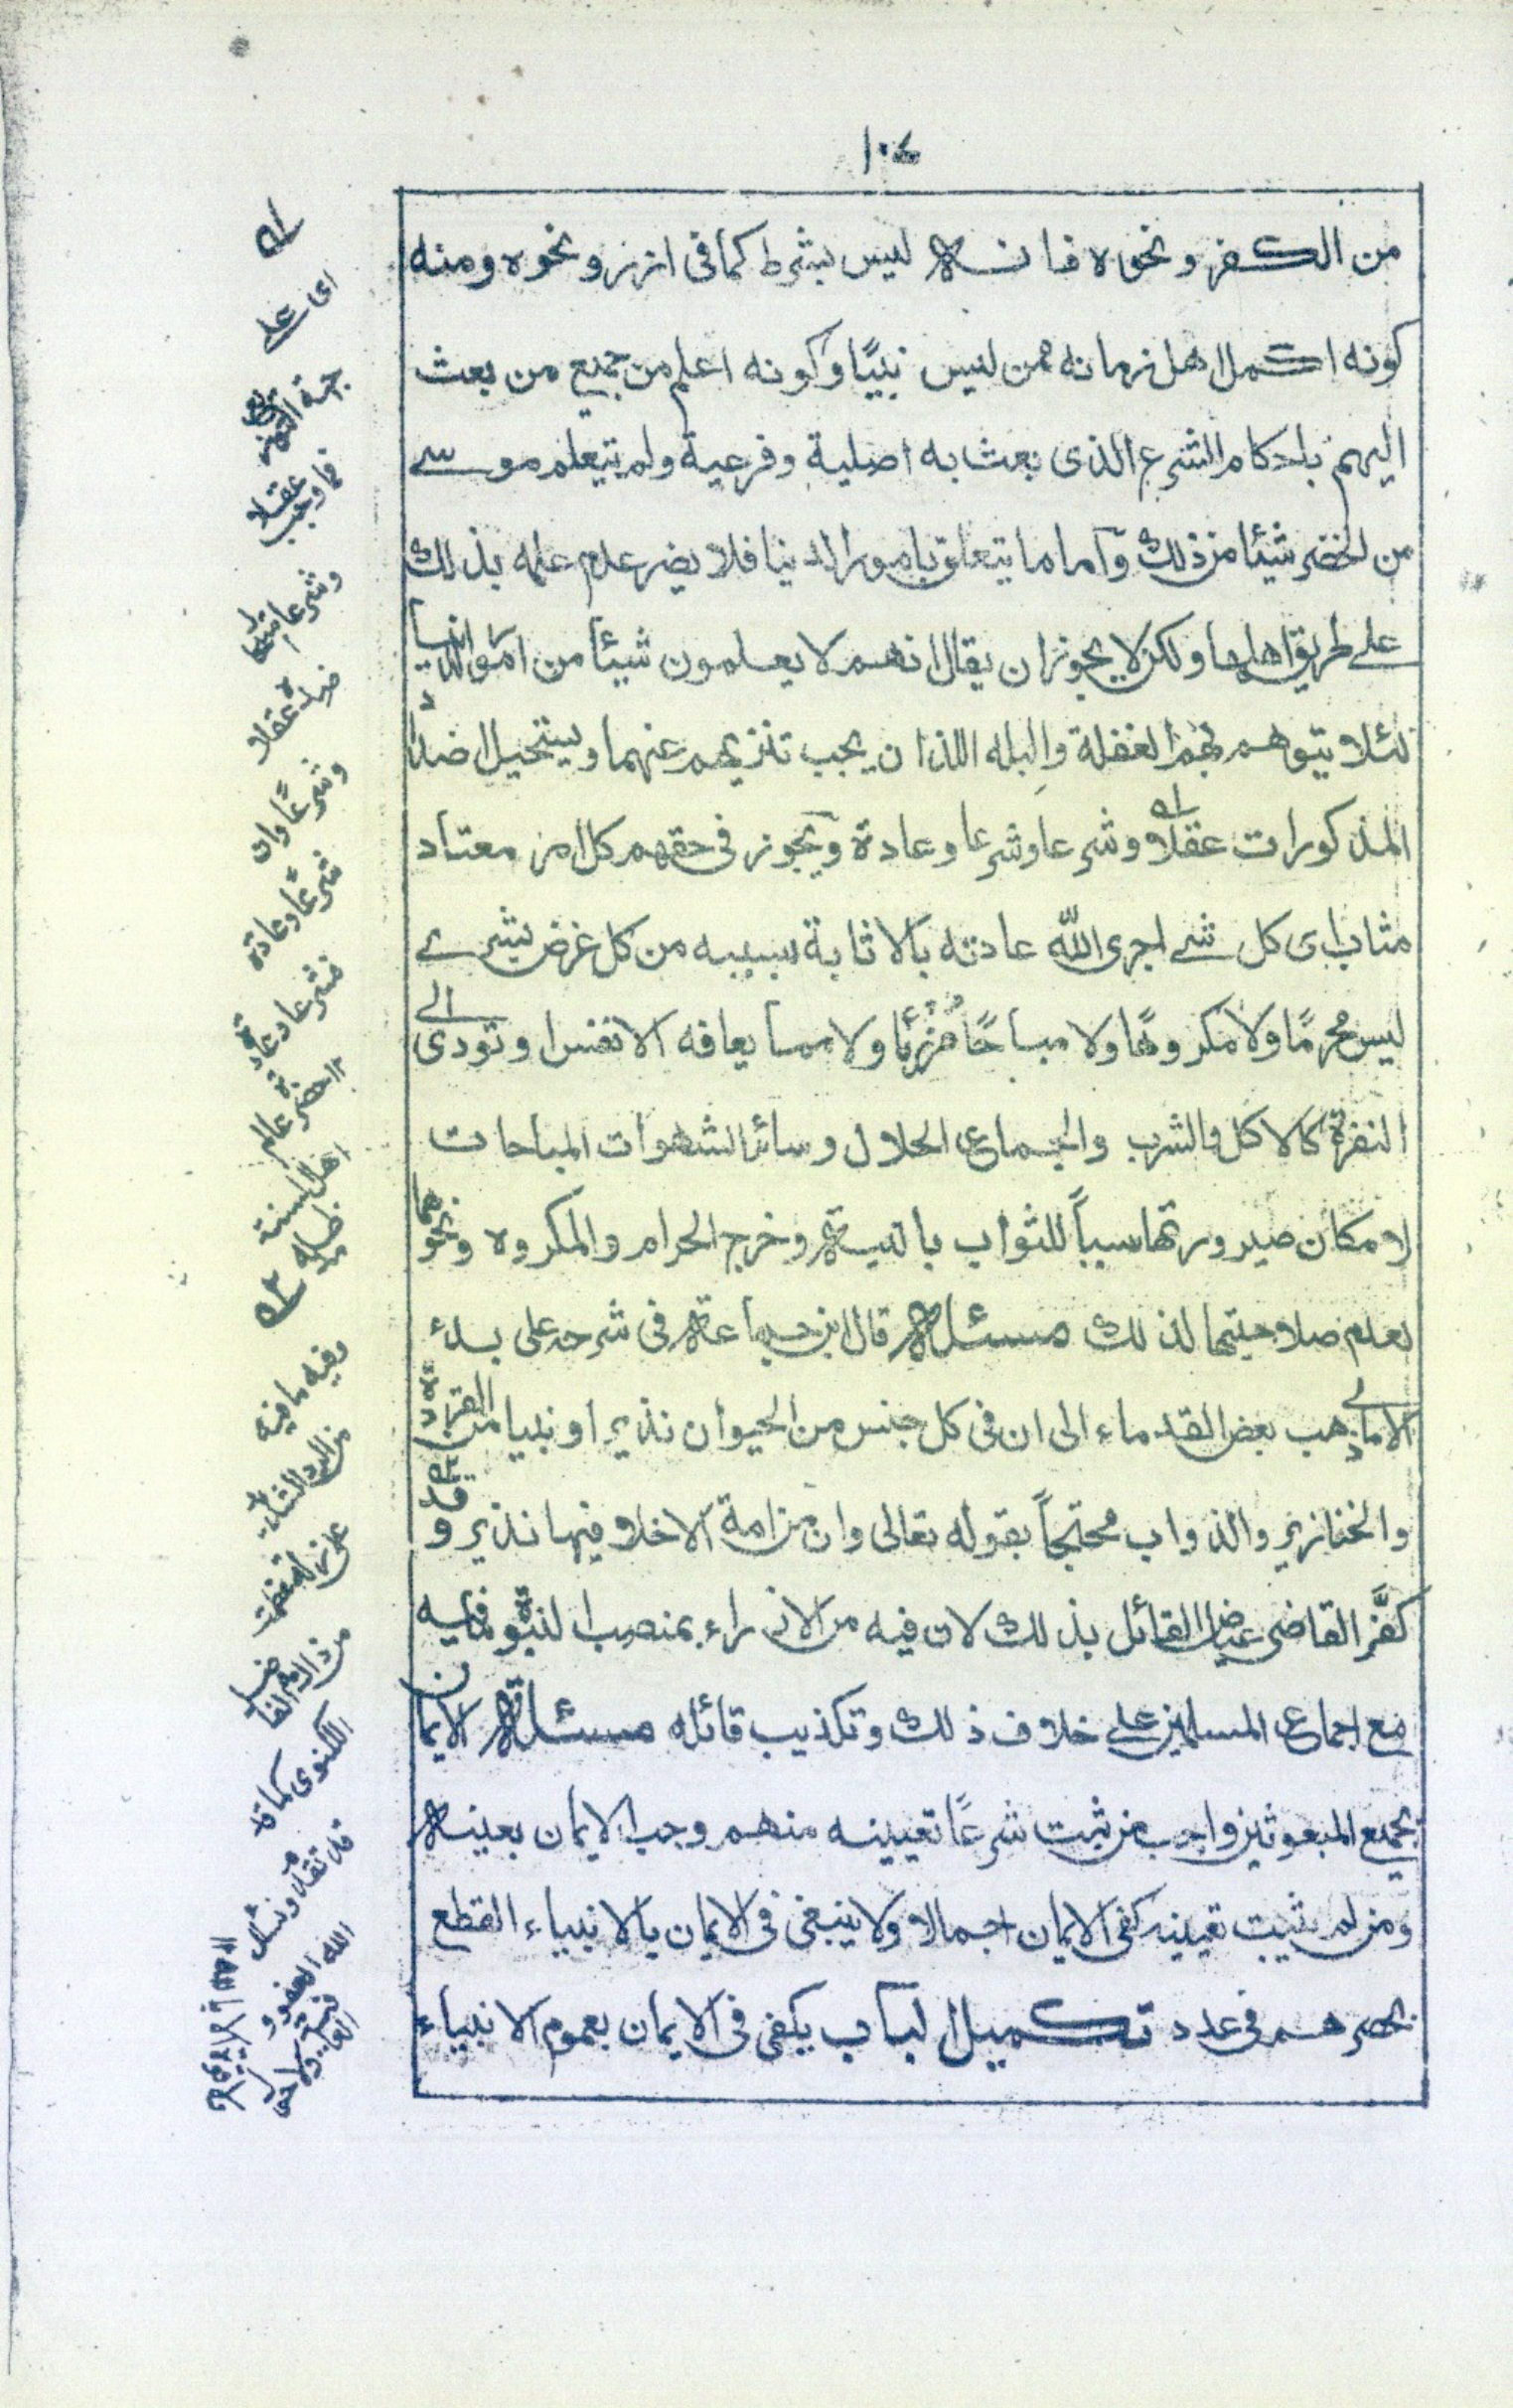 ١٠٤
من الكفر ونحوه فانه ليس بشرط كما فى ازر ونحوه ومنه
كونه اكمل اهل زمانه ممن ليس نبيًا وكونه اعلم من جميع من بعث
اليهم باحكام الشرع الذى بعث به اصلية وفرعية ولم يتعلم موسے
من الخضر شيئا من ذلك وآما ما يتعلق بامور الدنيا فلا يضر عدم علمه بذلك
علے طريق اهلها ولكن لا يجوز ان يقال انهم لا يعلمون شيئا من امور الدنيا
لئلا يتوهم بهم الغفلة والبله اللذان يجب تنزيههم عنهما ويستحيل ضد
المذكورات عقلا له وشرعا وشرعا وعادة ويجوز فى حقهم كل امر معتاد
مثاب اى كل شے اجرى الله عادته بالاثابة بسببه من كل غرض بشرے
ليس محرمًا ولا مكروهًا ولا مباحًا مُزْرِيًا ولا مما يعافه الانفس او تودى الى
النفرة كالاكل والشرب والجماع الحلال وسائر الشهوات المباحات
لامكان صيرورتها سببًا للثواب بالنية وخرج الحرام والمكروه ونحوهما
لعدم صلاحيتهما لذلك مسئلة قال ابن جماعة فى شرحه على بدء
الامالى ذهب بعض القدماء الى ان فى كل جنس من الحيوان نذير او نبيا من القردة
والخنازير والدواب محتجًا بقوله تعالى وان من امة الا خلا فيها نذير وقد
كفَّر القاضى عياض القائل بذلك لان فيه من الازراء بمنصب النبوة ما فيه
مع اجماع المسلمين علے خلاف ذلك وتكذيب قائله مسئلة الايمان
بجميع المبعوثين واجب من ثبت شرعًا تعيينه منهم وجب الايمان بعينه
ومن لم يثبت تعيينه كفى الايمان اجمالا ولا ينبغى فى الايمان بالانبياء القطع
بحصرهم فى عدد تكميل الباب يكفى فى الايمان بعموم الانبياء
له
اى على
جهة
فما وجب عقلا
وشرعا
ضده عقلا
وشرعًا وان
شرعًا وعادة
فشرعا وعادة
١٢ حضرة عالم
اهل السنة
مدظله
وفيه ما فيه
من الرد
على
من
اللكنوى كما قد
ونسئل
الله العفو و
العافية